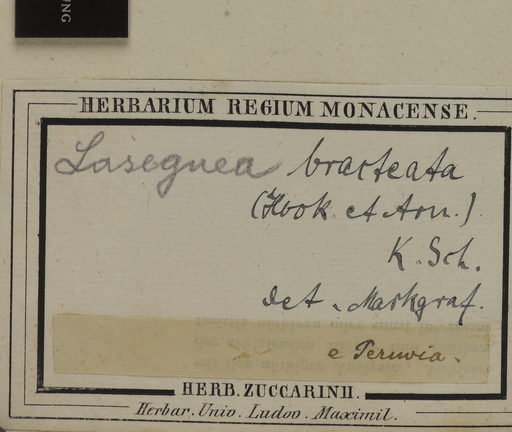 NG
HERBARIUM REGIUM MONACENSE.
Laseguea bracteata
(Hook et Arn.)
K. Sch.
det. Markgraf.
e Peruvia.
HERB. ZUCCARINII.
Herbar. Univ. Ludov. Maximil.